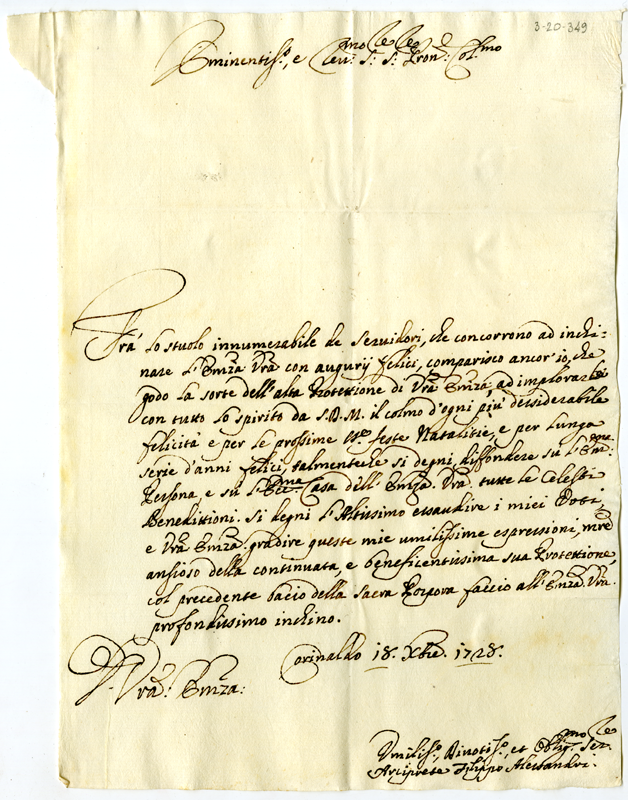 3-20-349
Eminentis.o, e Rev.mo S.re S.re Pron. Col.mo
Frà lo stuolo innumerabile de Servidori, che concorrono ad inchi=
nare l'Emza Vra con augurij felici, comparisco ancor'io, che
godo la sorte dell'alta Protettione di Vra Emza, ad implorarLe
con tutto lo spirito da S.D.M. il colmo d'ogni più desiderabile
felicità e per le prossime feste Natalitie, e per lunga
serie d'anni felici, talmenteche si degni diffondere sù l'Em.ma
Persona, e sù l'Ecc.ma Casa dell'Emza Vra tutte le Celesti
Benedittioni. Si degni l'Altissimo essaudire i miei Voti,
e Vra Emza gradire queste mie umilissime espressioni, mre
ansioso della continuata, e beneficentissima sua Protettione,
col precedente bacio della Sacra Porpora faccio all'Emza Vra
profondissimo inchino.
Corinaldo 18. Xbre. 1728.
D. Vra: Emza:
Umilis.o, Divotis.o, et Oblig.mo Ser.re
Arciprete Filippo Alessandri.